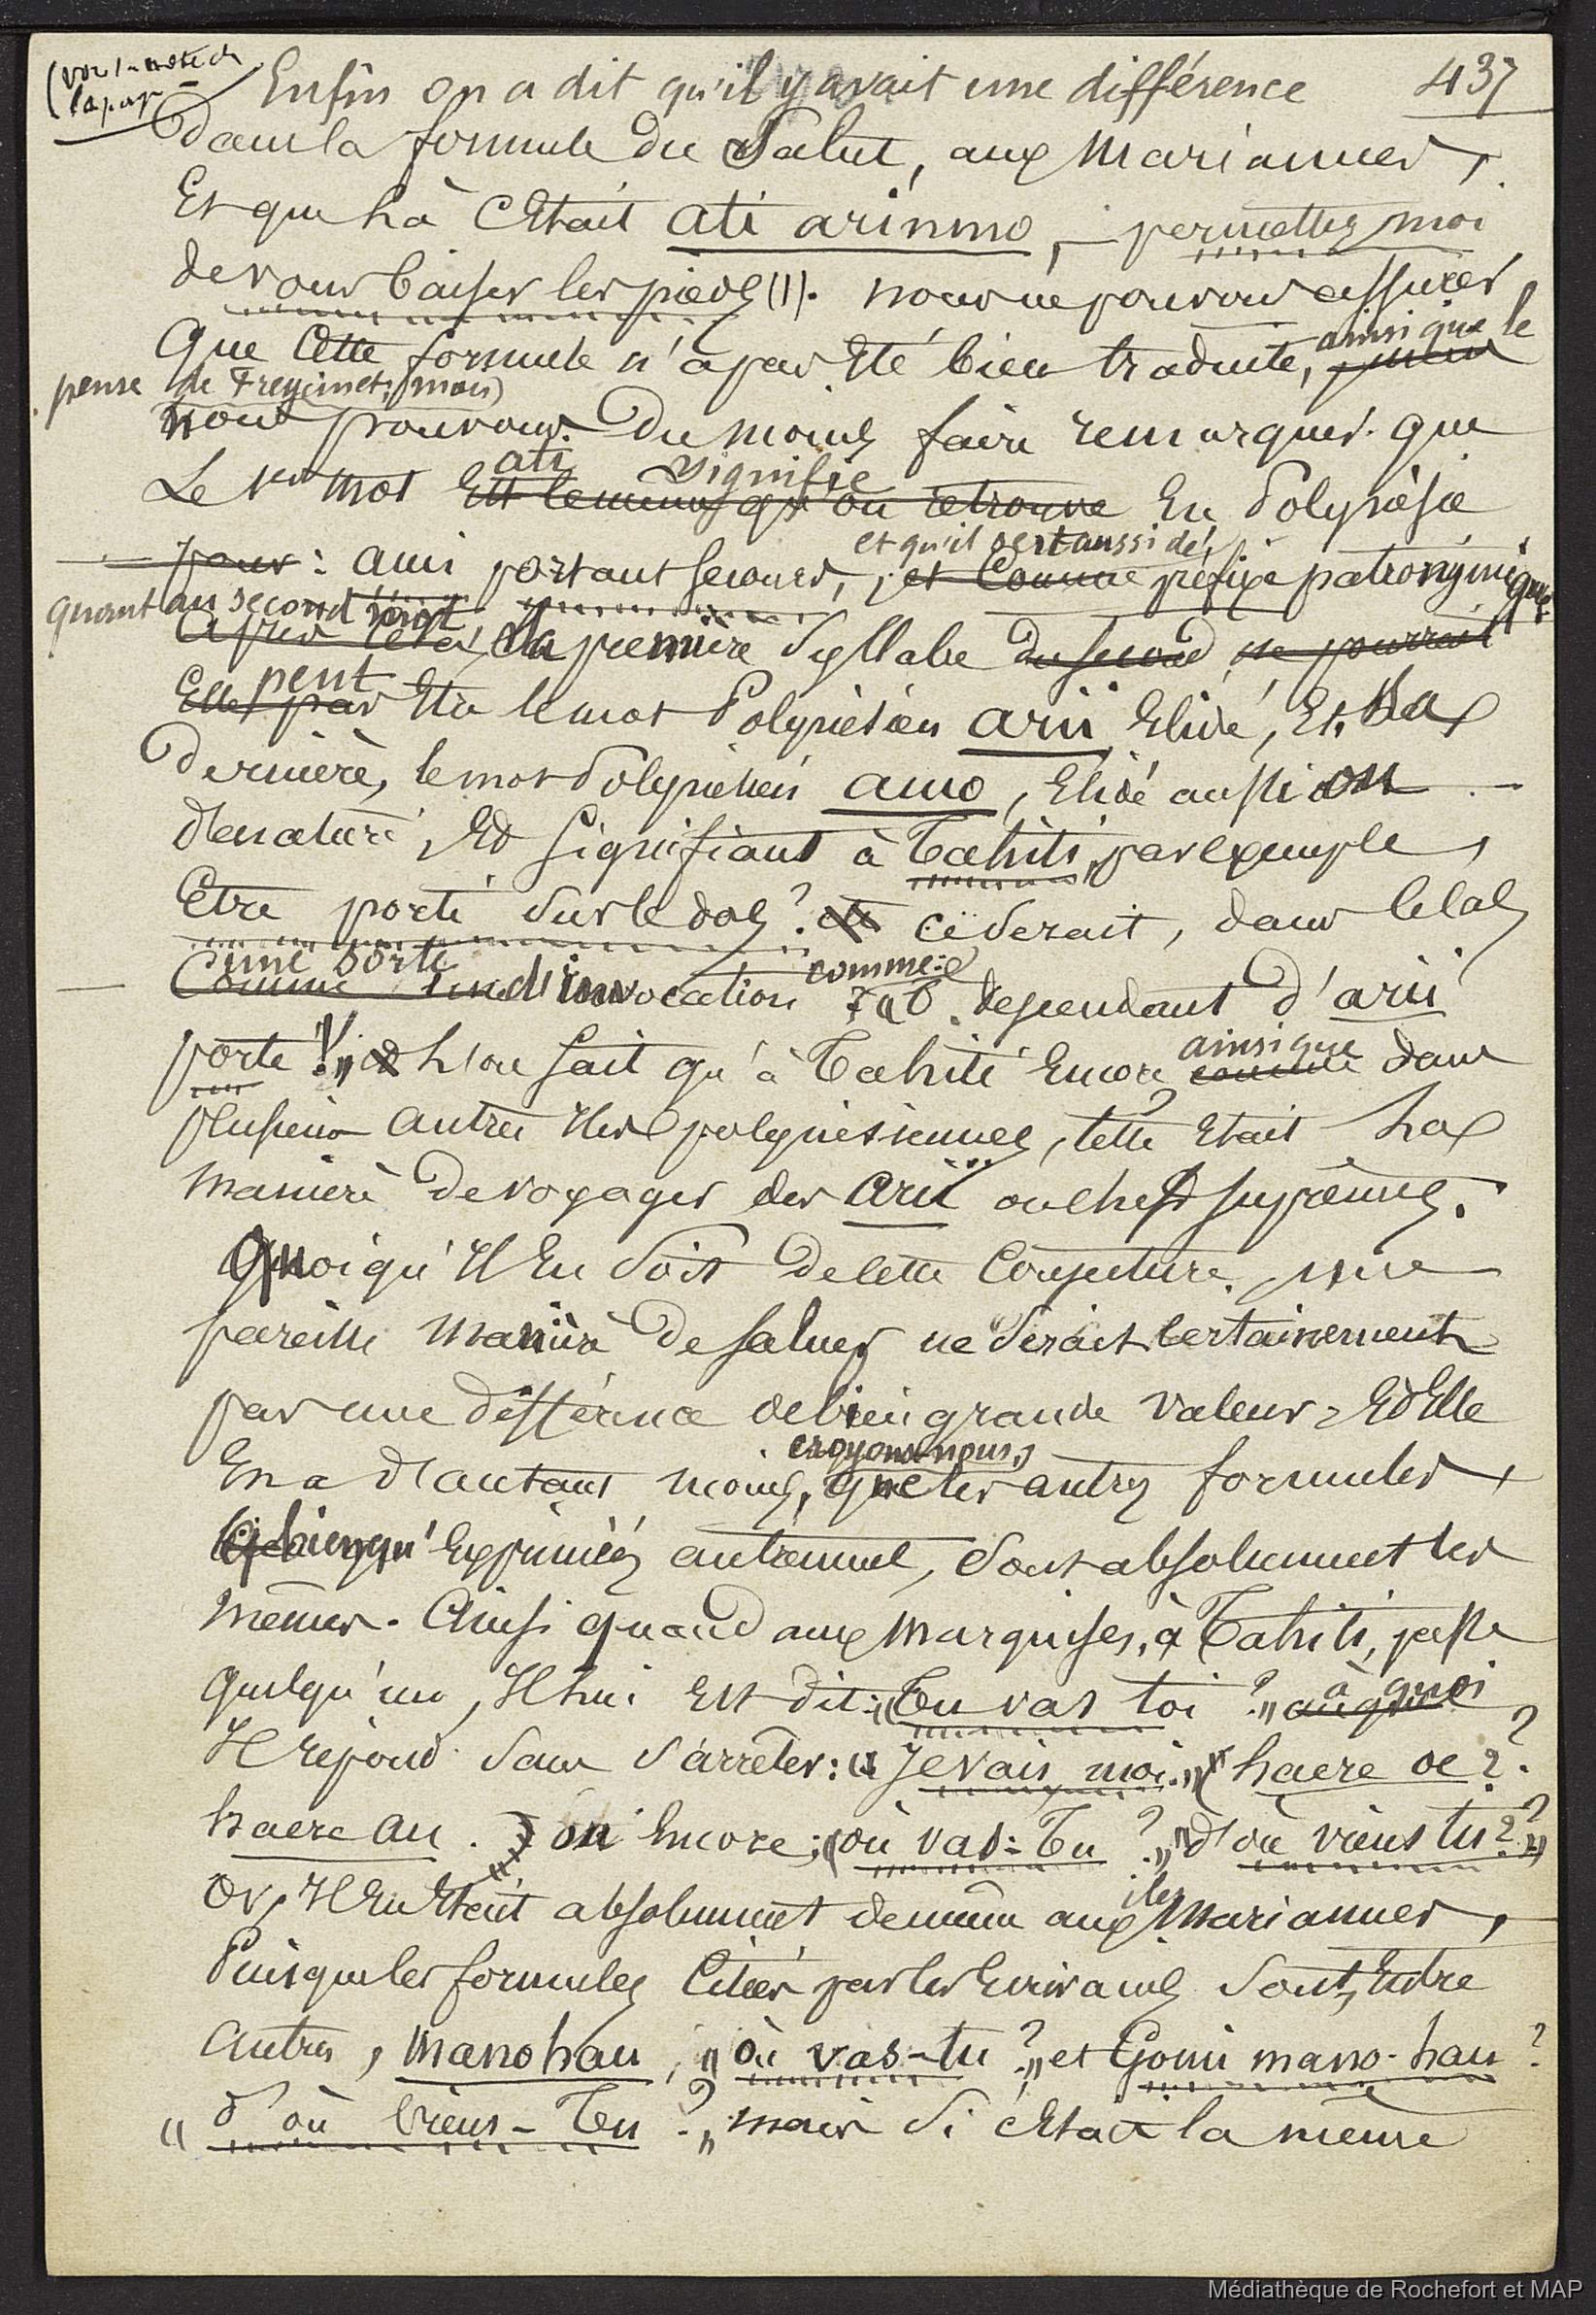 (voir la note de
la page
437
Enfin on a dit qu'il y avait une différence
dans la formule du Salut, aux Mariannes,
Et que là c'Etait ati arinmo, - permettez moi
de vous baiser les pieds (1). nous ne pouvons assurer
ainsi que le
Que Cette formule n'a pas Eté bien traduite,
pense de Freycinet; mais)
nous pouvons du moins faire remarquer que
ati signifie
Le 1er mot Est le même qu'on retrouve En Polynésie
et qu'il sert aussi de
pour : ami portant secours, et Comme préfixe patronymique
quant au second mot,
Après cela, la première Syllabe du second, ne pourrait
peut
Elle pas Etre le mot Polynésien arii Elidé, Et la
dernière, le mot Polynésien amo, Elidé aussi ou
dénaturé, Et signifiant à Tahiti, par exemple,
Etre porté sur le dos? ce serait, dans le cas,
une sorte comme:
Comme une d'invocation du descendant d'arii
porté!" l'on sait qu'à Tahiti Encore ainsi que
comme dans
plusieurs autres Iles polynésiennes, telle Etait la
manière de voyager des arii ou chefs suprêmes.
Quoiqu'Il En Soit de cette Conjecture, une
pareille manière de saluer ne Serait certainement
pas une différence de bien grande valeur, Et Elle
croyons-nous,
En a d'autant moins, que les autres formules,
bien qu'Exprimées autrement, Sont absolument les
mêmes. Ainsi quand aux Marquises, à Tahiti, passe
quelqu'un, Il lui Est dit: "Tu vas toi?" à quoi
Il répond Sans S'arrêter: "Je vais moi." (haere oe?
haere au.) ou Encore; "où vas-Tu?" "d'où viens tu?"
îles
Or, Il En Etait absolument de même aux Mariannes,
Puisque les formules Citées par les Ecrivains Sont, Entre
Autres, Mano hau, "où vas-tu?" et Gomi mano-hau?
"d'où viens-Tu?" mais Si c'Etait la même
Médiathèque de Rochefort et MAP